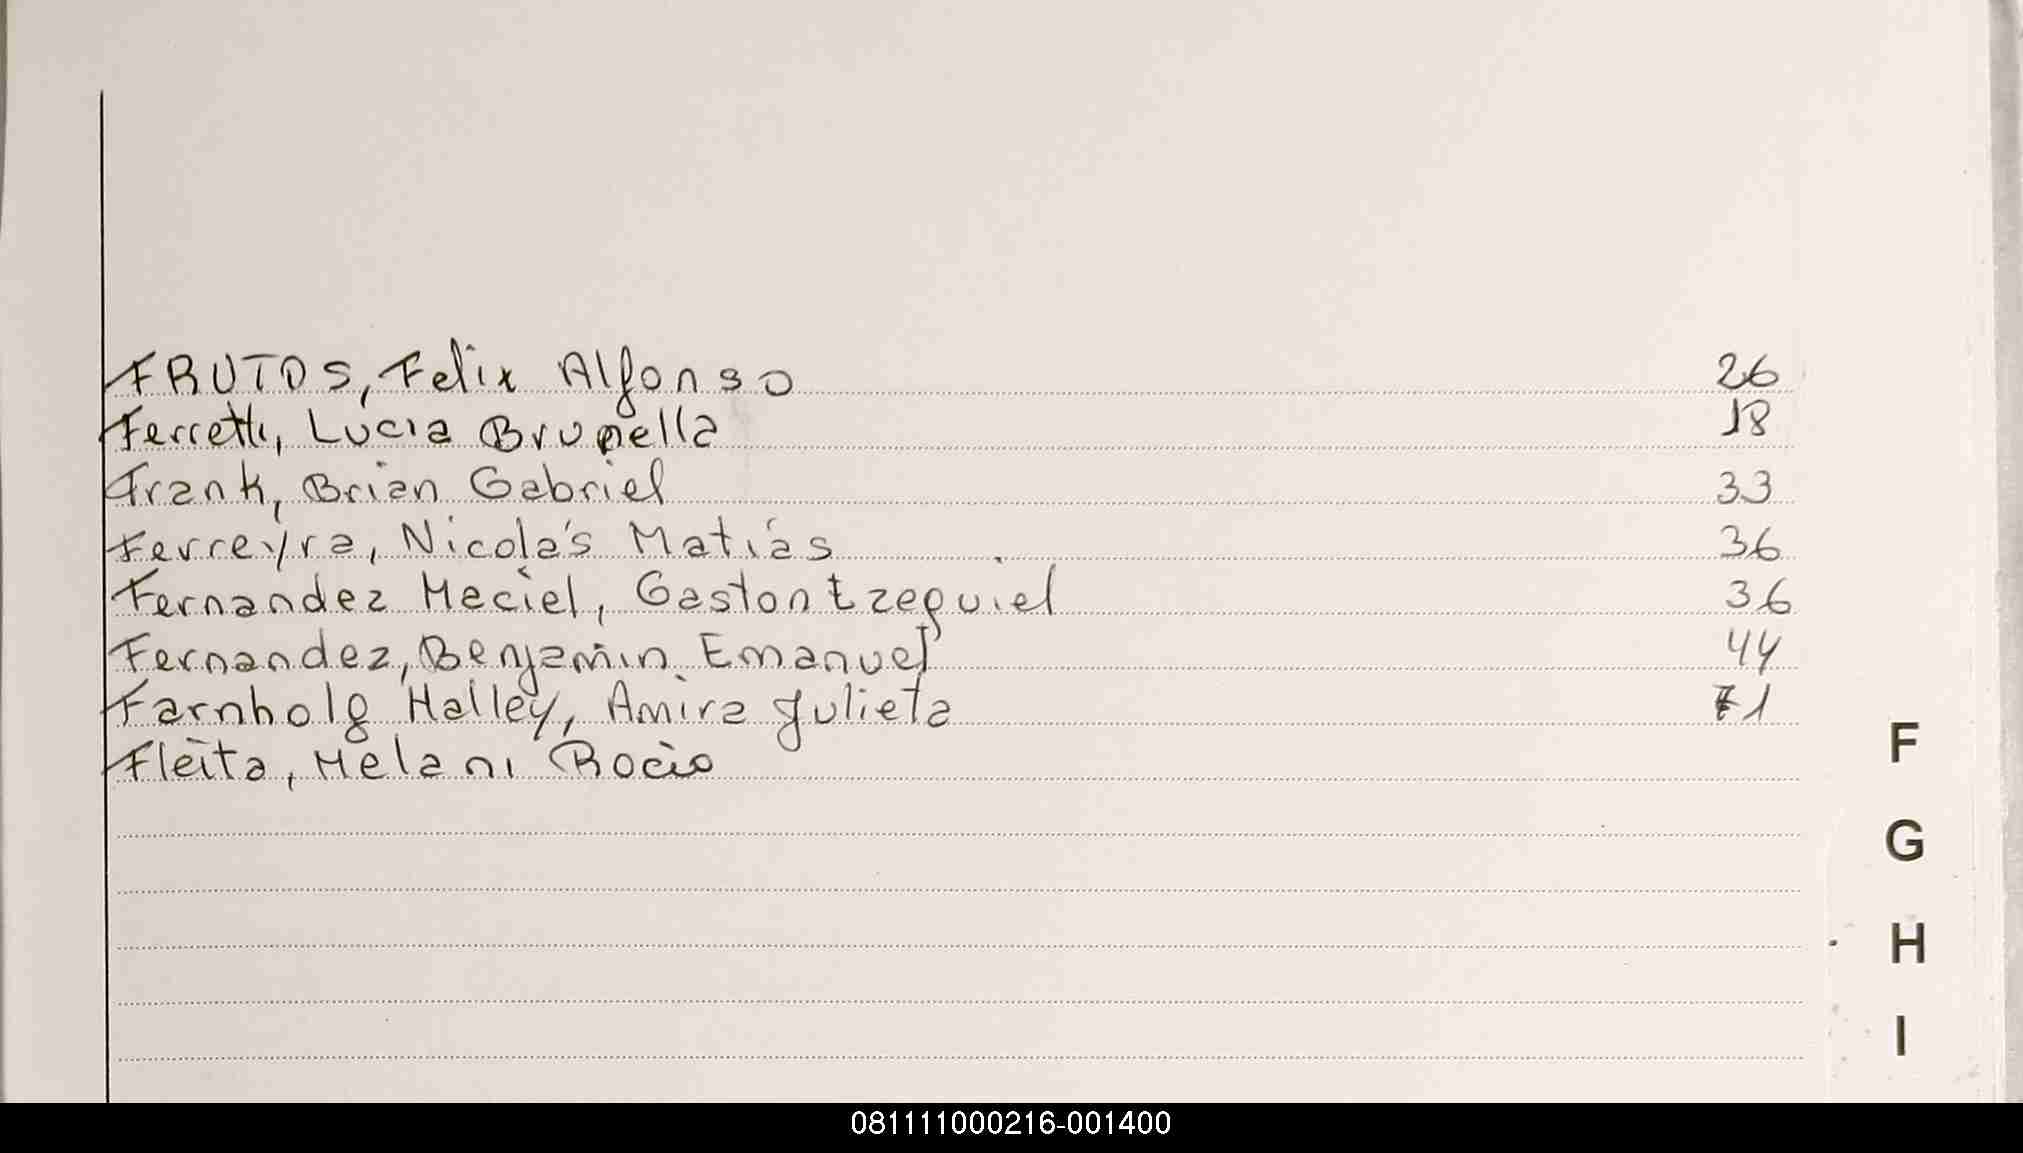 FRUTOS, Felix Alfonso 26
Ferretti, Lucia Brunella 18
Frank, Brian Gabriel 33
Ferreyra, Nicolás Matías 36
Fernandez Meciel, Gaston Ezequiel 36
Fernandez, Benjamin Emanuel 44
Farnholg Halley, Amira Julieta 71
Fleita, Melani Rocio
F
G
H
I
081111000216-001400